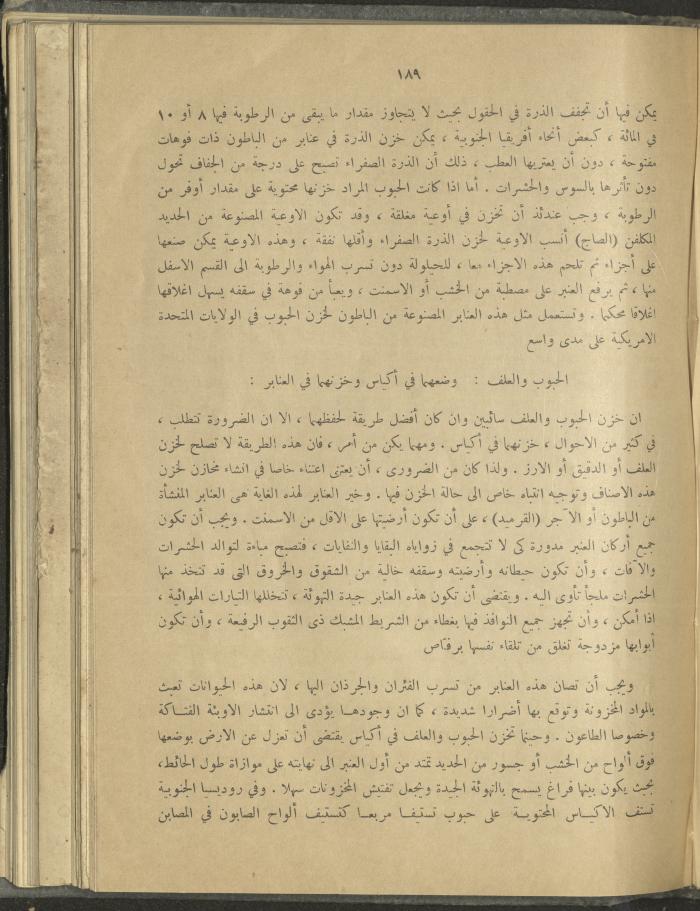 ١٨٩
يمكن فيها أن تجفف الذرة في الحقول بحيث لا يتجاوز مقدار ما يبقى من الرطوبة فيها ٨ أو ١٠
في المائة ، كبعض أنحاء أفريقيا الجنوبية ، يمكن خزن الذرة في عنابر من الباطون ذات فوهات
مفتوحة ، دون أن يعتريها العطب ، ذلك أن الذرة الصفراء تصبح على درجة من الجفاف تحول
دون تأثرها بالسوس والحشرات . أما اذا كانت الحبوب المراد خزنها محتوية على مقدار أوفر من
الرطوبة ، وجب عندئذ أن تخزن في أوعية مغلقة ، وقد تكون الاوعية المصنوعة من الحديد
المكلفن (الصاج) أنسب الاوعية لخزن الذرة الصفراء وأقلها نفقة ، وهذه الاوعية يمكن صنعها
على أجزاء ثم تلحم هذه الاجزاء معا ، للحيلولة دون تسرب الهواء والرطوبة الى القسم الاسفل
منها ، ثم يرفع العنبر على مصطبة من الخشب أو الاسمنت ، ويعبأ من فوهة في سقفه يسهل اغلاقها
اغلاقا محكما . وتستعمل مثل هذه العنابر المصنوعة من الباطون لخزن الحبوب في الولايات المتحدة
الامريكية على مدى واسع
الحبوب والعلف : وضعهما في أكياس وخزنهما في العنابر :
ان خزن الحبوب والعلف سائبين وان كان أفضل طريقة لحفظهما ، الا ان الضرورة تتطلب ،
في كثير من الاحوال ، خزنهما في أكياس . ومهما يكن من أمر ، فان هذه الطريقة لا تصلح لخزن
العلف أو الدقيق أو الارز . ولذا كان من الضرورى ، أن يعتنى اعتناء خاصا في انشاء مخازن لخزن
هذه الاصناف وتوجيه انتباه خاص الى حالة الخزن فيها . وخير العنابر لهذه الغاية هى العنابر المنشأة
من الباطون أو الآجر (القرميد) ، على أن تكون أرضيتها على الاقل من الاسمنت . ويجب أن تكون
جميع أركان العنبر مدورة كى لا تتجمع في زواياه البقايا والنفايات ، فتصبح مباءة لتوالد الحشرات
والآفات ، وأن تكون حيطانه وأرضيته وسقفه خالية من الشقوق والخروق التى قد تتخذ منها
الحشرات ملجأ تأوى اليه . ويقتضى أن تكون هذه العنابر جيدة التهوئة ، تتخللها التيارات الهوائية ،
اذا أمكن ، وأن تجهز جميع النوافذ فيها بغطاء من الشريط المشبك ذى الثقوب الرفيعة ، وأن تكون
أبوابها مزدوجة تغلق من تلقاء نفسها برفاص
ويجب أن تصان هذه العنابر من تسرب الفئران والجرذان اليها ، لان هذه الحيوانات تعبث
بالمواد المخزونة وتوقع بها أضرارا شديدة ، كما ان وجودهـا يؤدى الى انتشار الاوبئة الفتـاكة
وخصوصا الطاعون . وحينما تخزن الحبوب والعلف في أكياس يقتضى أن تعزل عن الارض بوضعها
فوق ألواح من الخشب أو جسور من الحديد تمتد من أول العنبر الى نهايته على موازاة طول الحائط،
بحيث يكون بينها فراغ يسمح بالتهوئة الجيدة ويجعل تفتيش المخزونات سهلا . وفي روديسيا الجنوبية
تستف الاكيـاس المحتويـة على حبوب تستيفـا مربعـا كتستيف ألواح الصابون في المصابن